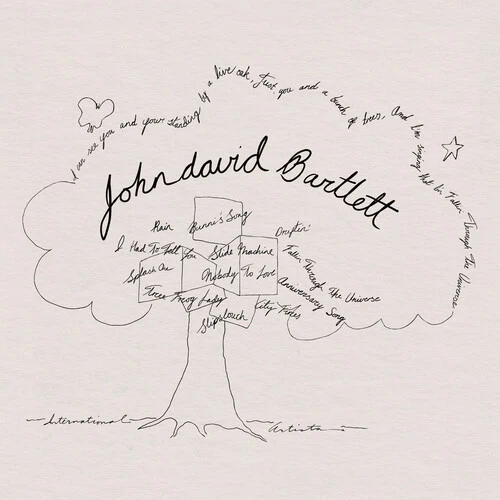 I can see you and your standing by a live oak, Just you and a bunch of trees, And I'm singing that I'm Fallin Through The Universe
John david Bartlett
Rain
Bunni's Song
Driftin'
I Had To Tell You
Slide Machine
Fallin Through The Universe
Splash One
Nobody To Love
Anniversary Song
Three Frog Lady
City Fires
Slipslouch
International Artists